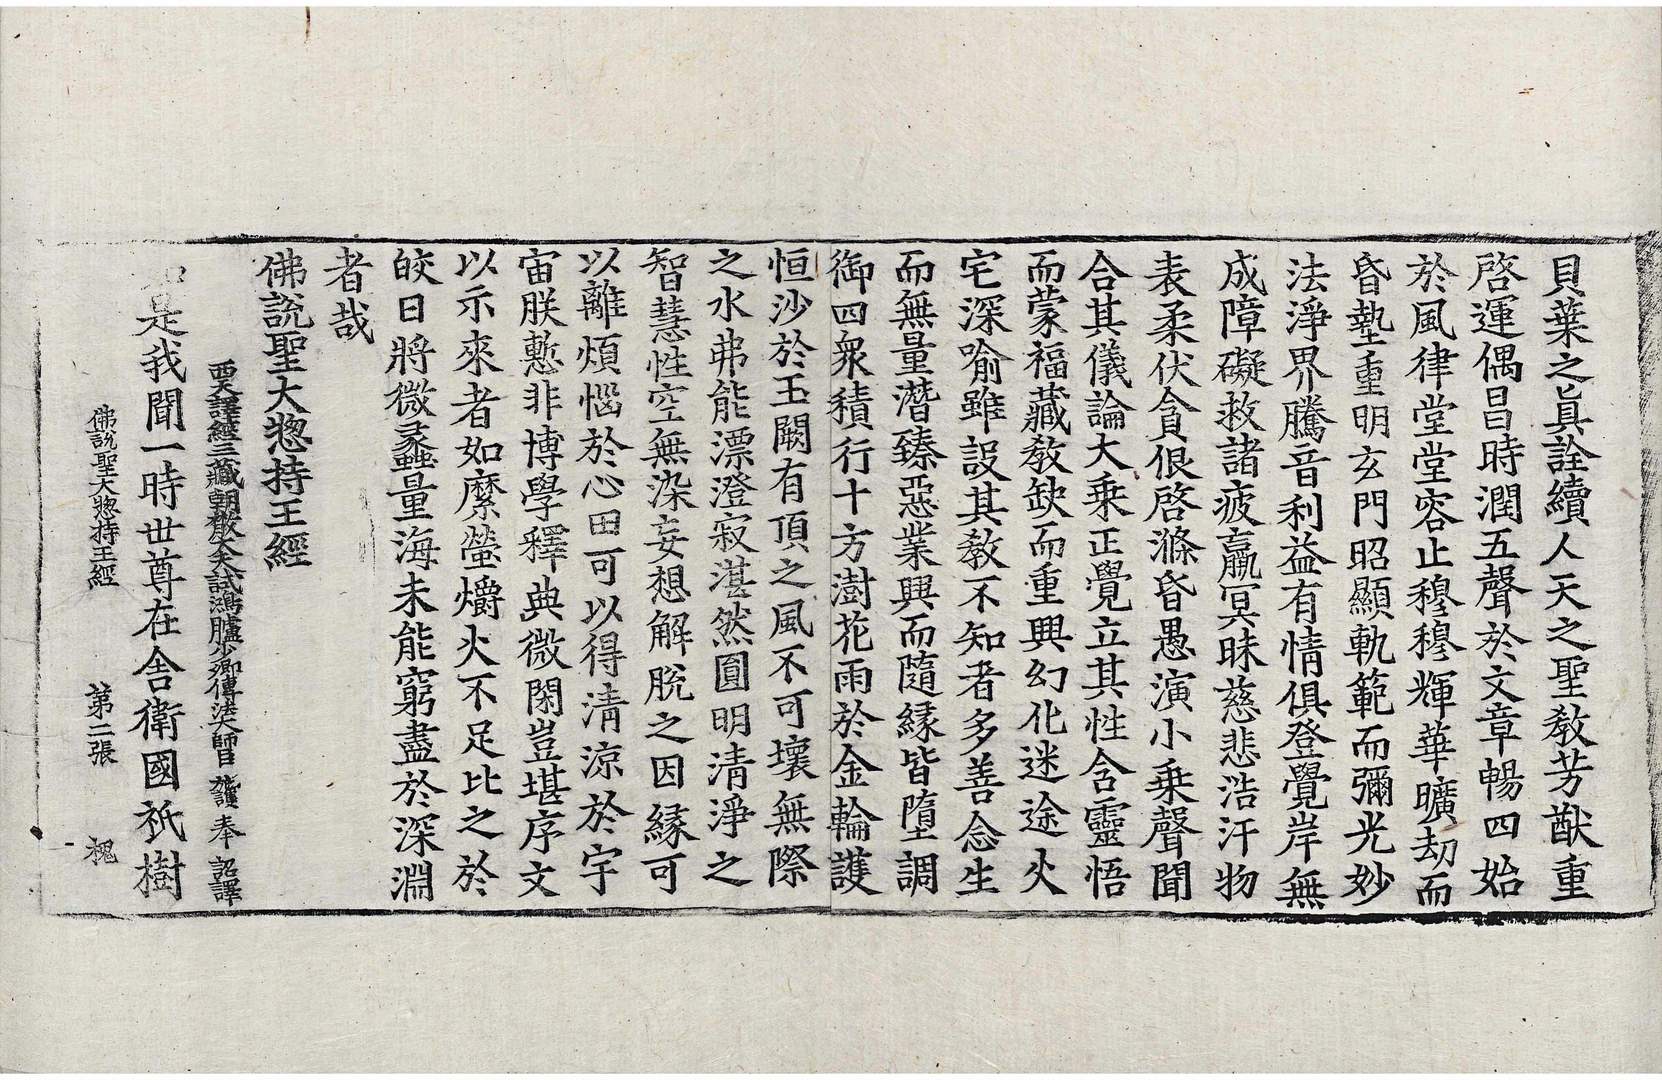 貝葉之眞詮續人天之聖敎芳猷重
啓運偶昌時潤五聲於文章暢四始
於風律堂堂容止穆穆輝華曠劫而
昏墊重明玄門昭顯軌範而彌光妙
法淨界騰音利益有情俱登覺岸無
成障礙救諸疲羸冥昧慈悲浩汗物
表柔伏貪佷啓滌昏愚演小乘聲聞
合其儀論大乘正覺立其性含靈悟
而蒙福藏敎缺而重興幻化迷途火
宅深喻雖設其敎不知者多善念生
而無量潛臻惡業興而隨緣皆墮調
御四衆積行十方澍花雨於金輪護
恒沙於玉闕有頂之風不可壞無際
之水弗能漂澄寂湛然圓明淸淨之
智慧性空無染妄想解脫之因緣可
以離煩惱於心田可以得淸涼於宇
宙朕慙非博學釋典微閑豈堪序文
以示來者如縻螢爝火不足比之於
皎日將微蠡量海未能窮盡於深淵
者哉
佛說聖大惣持王經
西天譯經三藏朝散大夫試鴻臚少卿傳法大師臣 施護 奉 詔譯
如是我聞一時世尊在舍衛國祇樹
佛說聖大惣持王經 第二張 槐